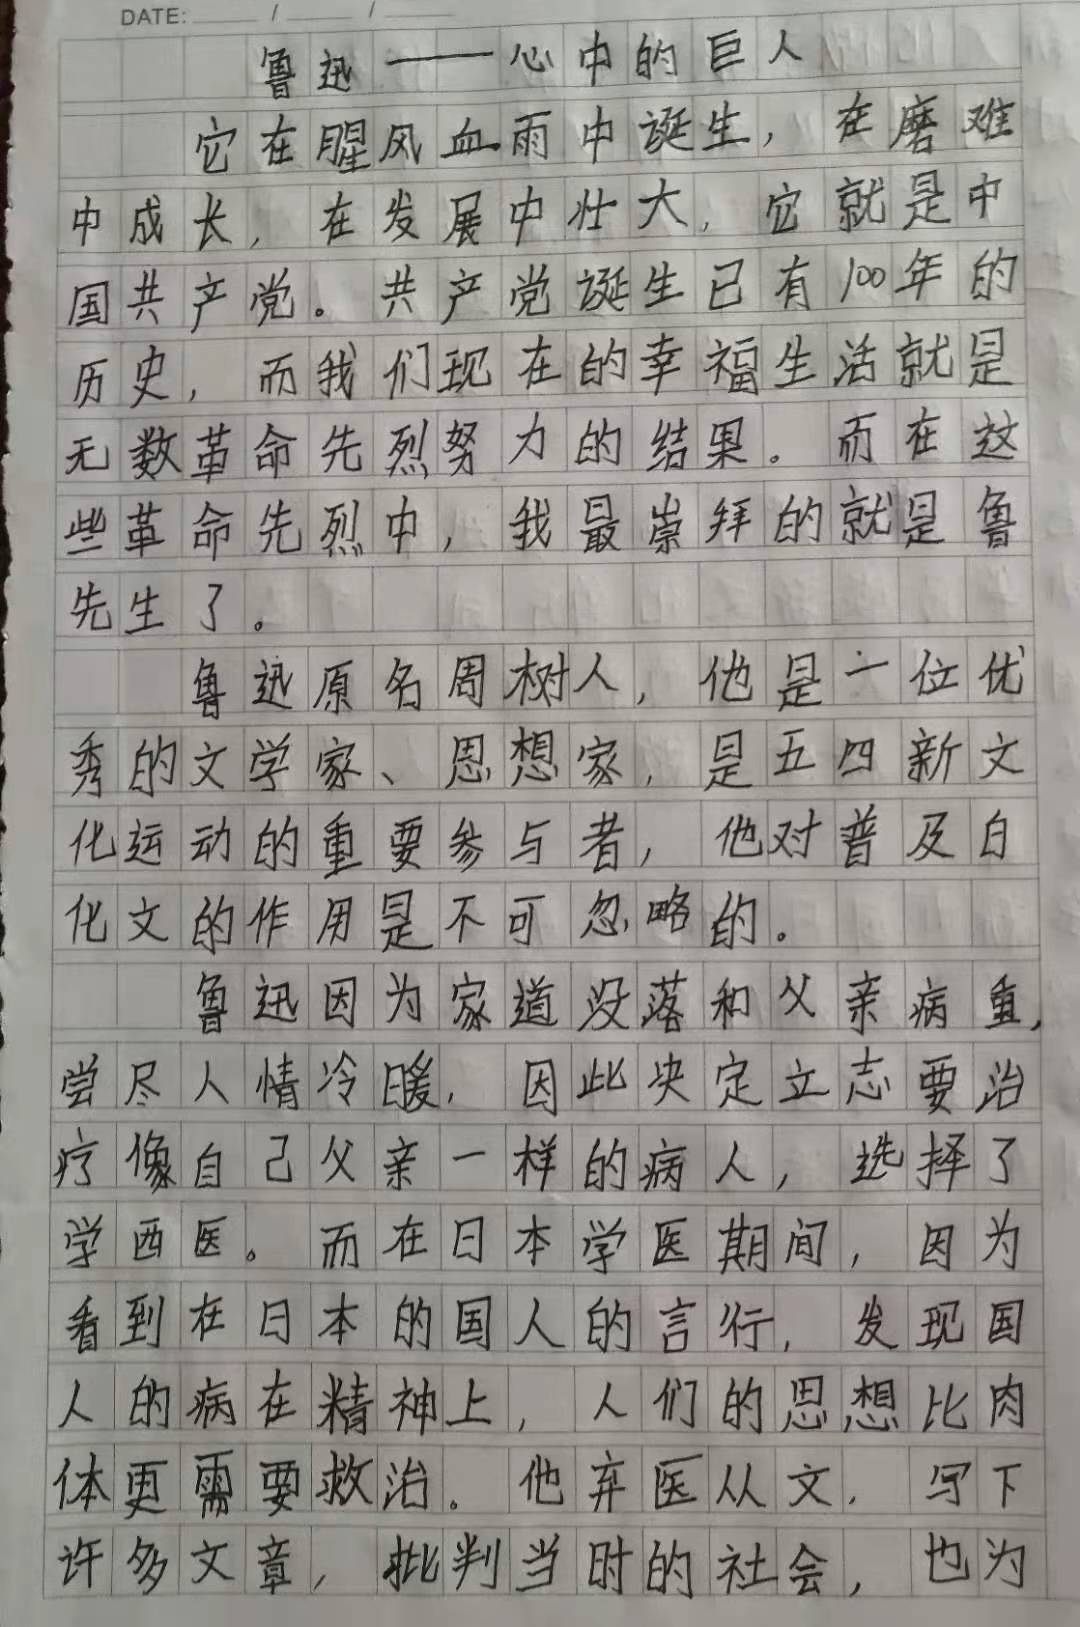 DATE: ____/____/____
鲁迅——心中的巨人
它在腥风血雨中诞生，在磨难
中成长，在发展中壮大，它就是中
国共产党。共产党诞生已有100年的
历史，而我们现在的幸福生活就是
无数革命先烈努力的结果。而在这
些革命先烈中，我最崇拜的就是鲁
先生了。
鲁迅原名周树人，他是一位优
秀的文学家、思想家，是五四新文
化运动的重要参与者，他对普及白
化文的作用是不可忽略的。
鲁迅因为家道没落和父亲病重，
尝尽人情冷暖，因此决定立志要治
疗像自己父亲一样的病人，选择了
学西医。而在日本学医期间，因为
看到在日本的国人的言行，发现国
人的病在精神上，人们的思想比肉
体更需要救治。他弃医从文，写下
许多文章，批判当时的社会，也为